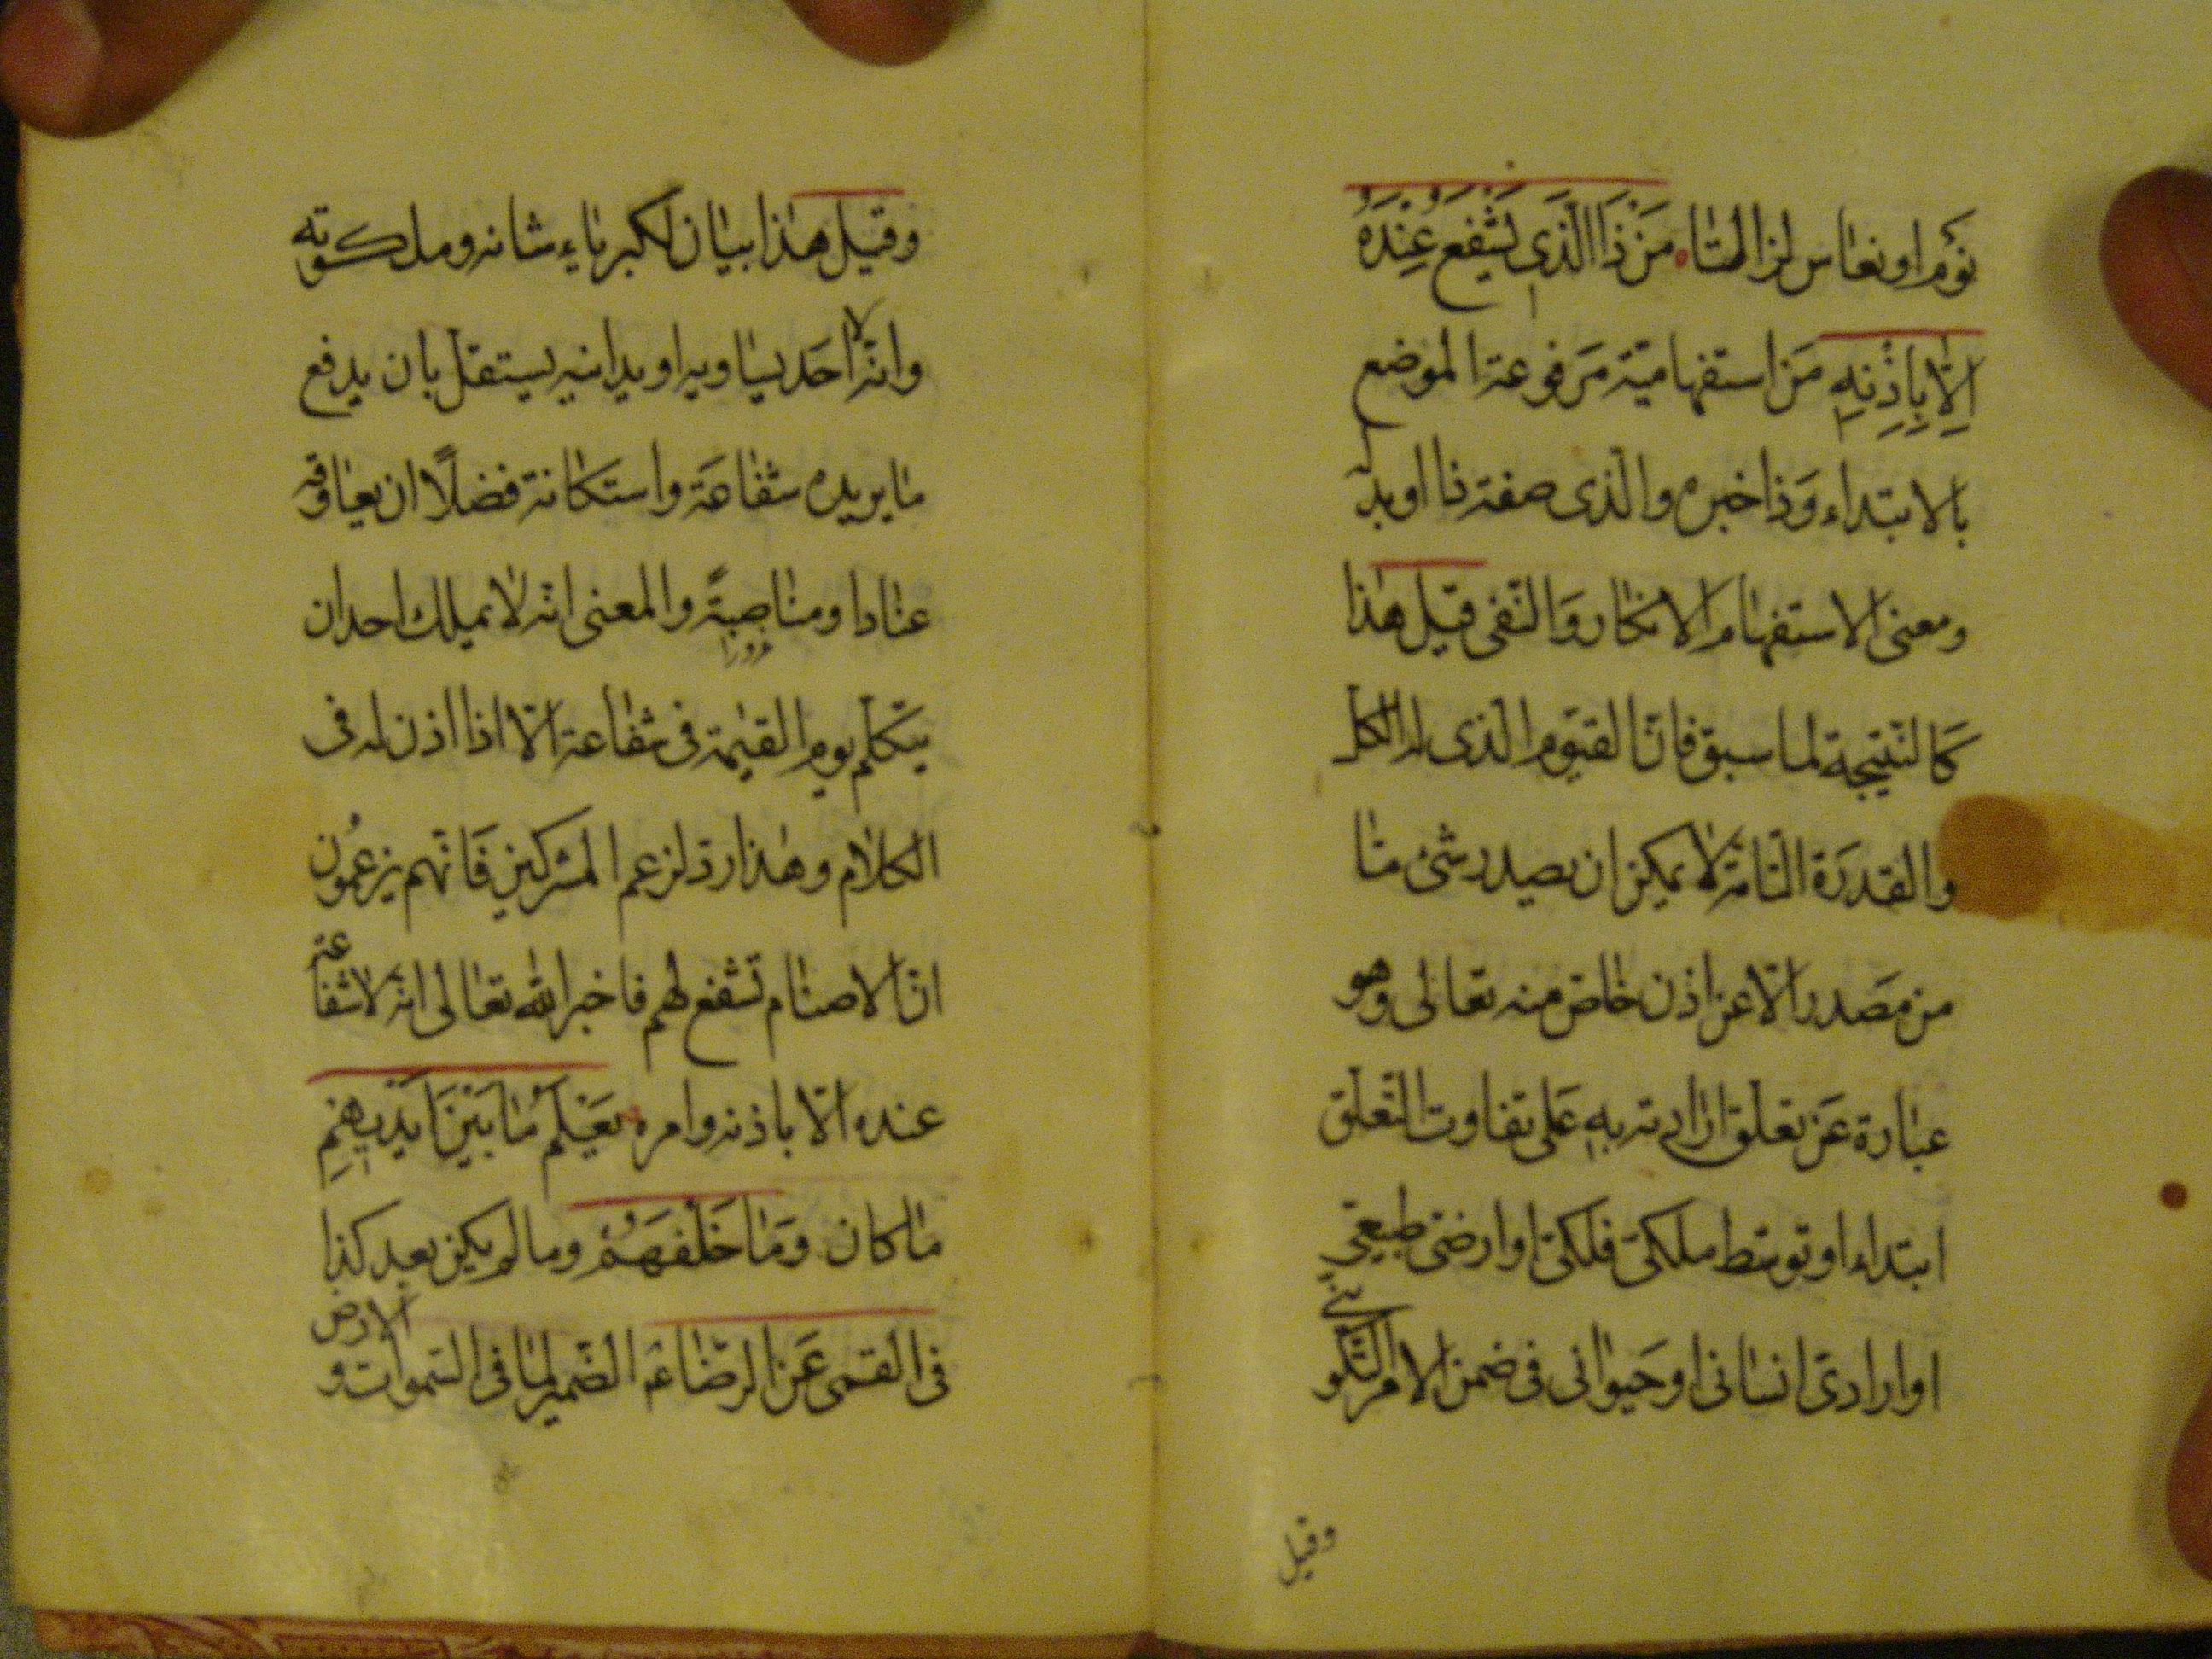 نَوْم او نعاس لزالتا مَنْ ذَا الَّذى يَشْفَعُ عِنْدَهُ
اِلّا بِاِذْنِهِ مَن استفهاميّة مَرفوعة الموضع
بالابتداء وَذا خبره والّذى صفة ذا او بدله
ومعنى الاستفهام الانكار وَالنّفى قيل هٰذا
كَالنّتيجة لما سبق فانّ القيّوم الّذى له الكل
والقدرَة التّامّة لا يمكن ان يصدر شئ ما
من مَصدر الّا عن اذن خاصّ منه تعالى وهو
عبارة عَن تعلّق ارادته بِه عَلى تفاوت التّعلّق
ابتداء او توسّط ملكىّ فلكىّ او ارضىّ طبيعىّ
او ارادىّ انسانى او حَيوانى فى ضمن الامر التّكوينى
وقيل
وقيل هٰذا بيان لكبرياء شانه وملكوته
وانّه لا احَد يساويه او يدانيه يستقلّ بان يدفع
ما يريده شفاعَة واستكانة فضلًا ان يعاوقه
عنادا ومناصبةً والمعنى انّه لا يملك احد ان
يتكلّم يوم القيٰمة فى شفاعة الّا اذا اذن له فى
الكلام وهٰذا ردّ لزعم المشركين فَانّهم يزعمُون
انّ الاصنام تشفع لهم فاخبر اللّه تعالى انّه لا شفاعة
عنده الّا باذنه وامره يَعْلَمُ مٰا بَيْنَ اَيْديهِمْ
مٰا كان وَمٰا خَلْفَهُمْ وما لم يكن بعد كذا
فى القمى عَن الرّضا عَ الضّمير لما فى السّموات والارض